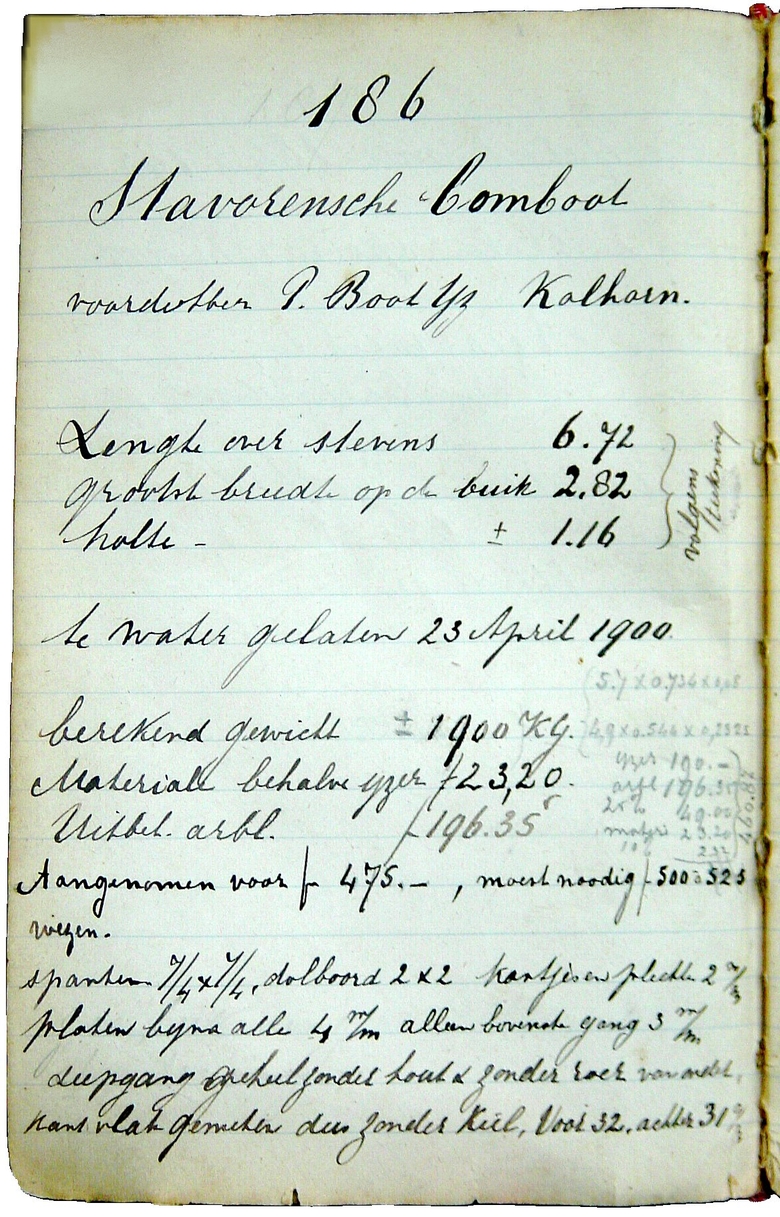 186
Stavorensche Comboot
P. Boot Kolhorn.
Lengte over stevens 6.72
grootste breedte op de buik 2.82
holte - ± 1.16
volgens tekening
te water gelaten 23 April 1900
5.7 x 0.736 x
4,9 x 0.546 x
berekend gewicht ± 1900 KG.
yzer 190.-
Materiale behalve yzer f 23,20.
arbl 196.35
Uitbet. arbl. f 196.35
40.00
23.20
Aangenomen voor f 475.-, moest noodig f 500 à 525
wezen.
spanten 7/4 x 7/4, dolboord 2 x 2 kantjes en plecht 2 m/m
platen byna alle 4 m/m alleen bovenste gang 3 m/m
diepgang geheel zonder hout & zonder roer van onder,
kant vlak gemeten dus zonder Kiel, Voor 32, achter 31